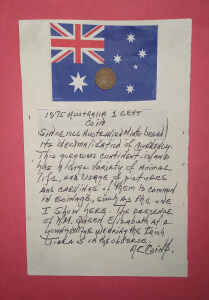 1975 AUSTRALIA 1 CENT
COIN
SINCE 1966 AUSTRALIAN MINT BEGAN
ITS DECIMALIZATION OF CURRENCY.
THIS GORGEOUS CONTINENT-ISLAND
HAS A LARGE VARIETY OF ANIMAL
LIFE, AND USAGE OF PICTURES
AND CARVINGS OF THEM IS COMMON
IN COINAGE, SUCH AS THE ONE
I SHOW HERE. THE PRESENCE
OF H.M. QUEEN ELIZABETH AT A
YOUNG AGE WEARING THE
TIARA IS ON THE OBVERSE.